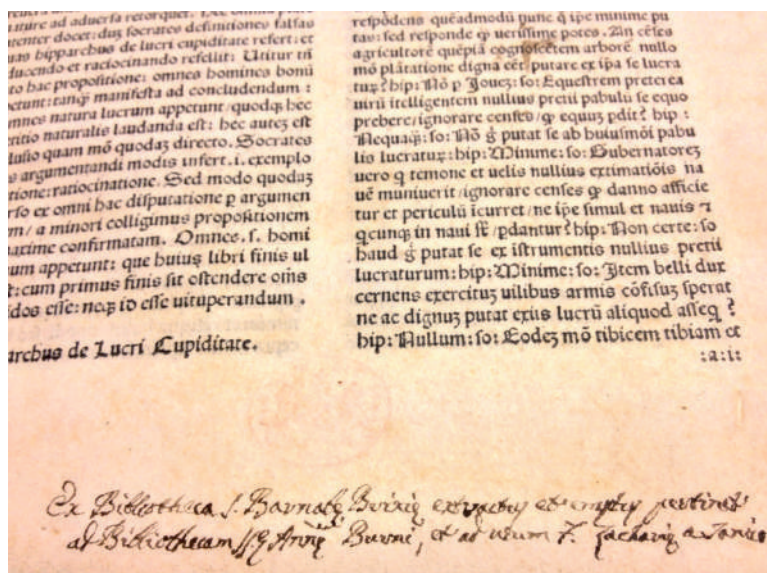 ature ad aduersa retorquet. Hec omnia
tenter docet: duȝ socrates definitiones falsas
uas hipparchus de lucri cupiditate refert: et
ducendo et raciocinando refellit: Utitur tñ
to hac propositione: omnes homines bonū
petunt: tanqȝ manifesta ad concludendum:
mnes natura lucrum appetunt / quodqȝ hec
etitio naturalis laudanda est: hec auteȝ est
lusio quam mō quodaȝ directo. Socrates
s argumentandi modis infert. i. exemplo
tione: ratiocinatione. Sed modo quodaȝ
rso ex omni hac disputatione ꝑ argumen
m / a minori colligimus propositionem
axime confirmatam. Omnes. s. homi
um appetunt: que huius libri finis ul
t: cum primus finis sit ostendere oms̄
idos esse: neqȝ id esse uituperandum.
archus de Lucri Cupiditate.
respōdens quēadmodū nunc ꝗ ipe minime pu
tas: sed responde ꝙ uerissime potes. An cēses
agricultorē quēpiā cognoscētem arborē nullo
mō plātatione digna eēt putare ex ipa se lucra
tuꝝ? hip: Nō ꝑ Joueȝ: so: Equestrem preterea
uirū ītelligentem nullius pretii pabulū se equo
prebere / ignorare censes / ꝙ equuȝ ꝑdit? hip:
Nequaqȝ: so: Nō ḡ putat se ab huiusmōi pabu
lis lucratuꝝ: hip: Minime: so: Gubernatoreȝ
uero ꝗ temone et uelis nullius extimatiōis na
uē muniuerit / ignorare censes ꝙ danno afficie
tur et periculū īcurret / ne ipe simul et nauis ⁊
qcunqȝ in naui st̄ / ꝑdantur? hip: Non certe: so
haud ḡ putat se ex īstrumentis nullius pretii
lucraturum: hip: Minime: so: Item belli dux
cernens exercituȝ uilibus armis cōfisuȝ sperat
ne ac dignuȝ putat exiis lucrū aliquod asseq?
hip: Nullum: so: Eodeȝ mō tibicem tibiam et
:a:i:
Ex Bibliotheca S. Barnabę extractus et emptus pertinet
ad Bibliothecam SS.ę Annę et ad usum F. Zacharię a